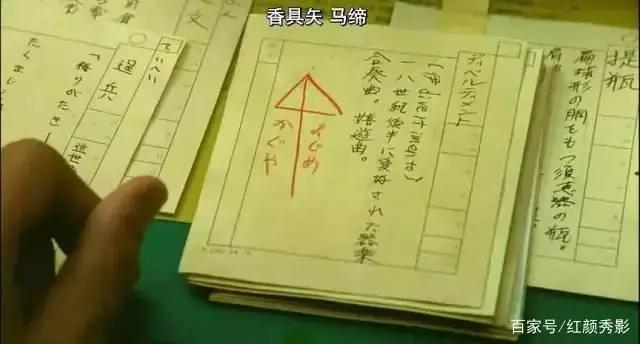 香具矢 马缔
提瓶
扁球形の胴をもつ須恵器の瓶。
ディベルティメント
〔伊 divertimento〕
一八世紀後半に愛好された器楽
合奏曲。嬉遊曲。
まじめ
かぐや
ていへい
逞兵
百家号/红颜秀影